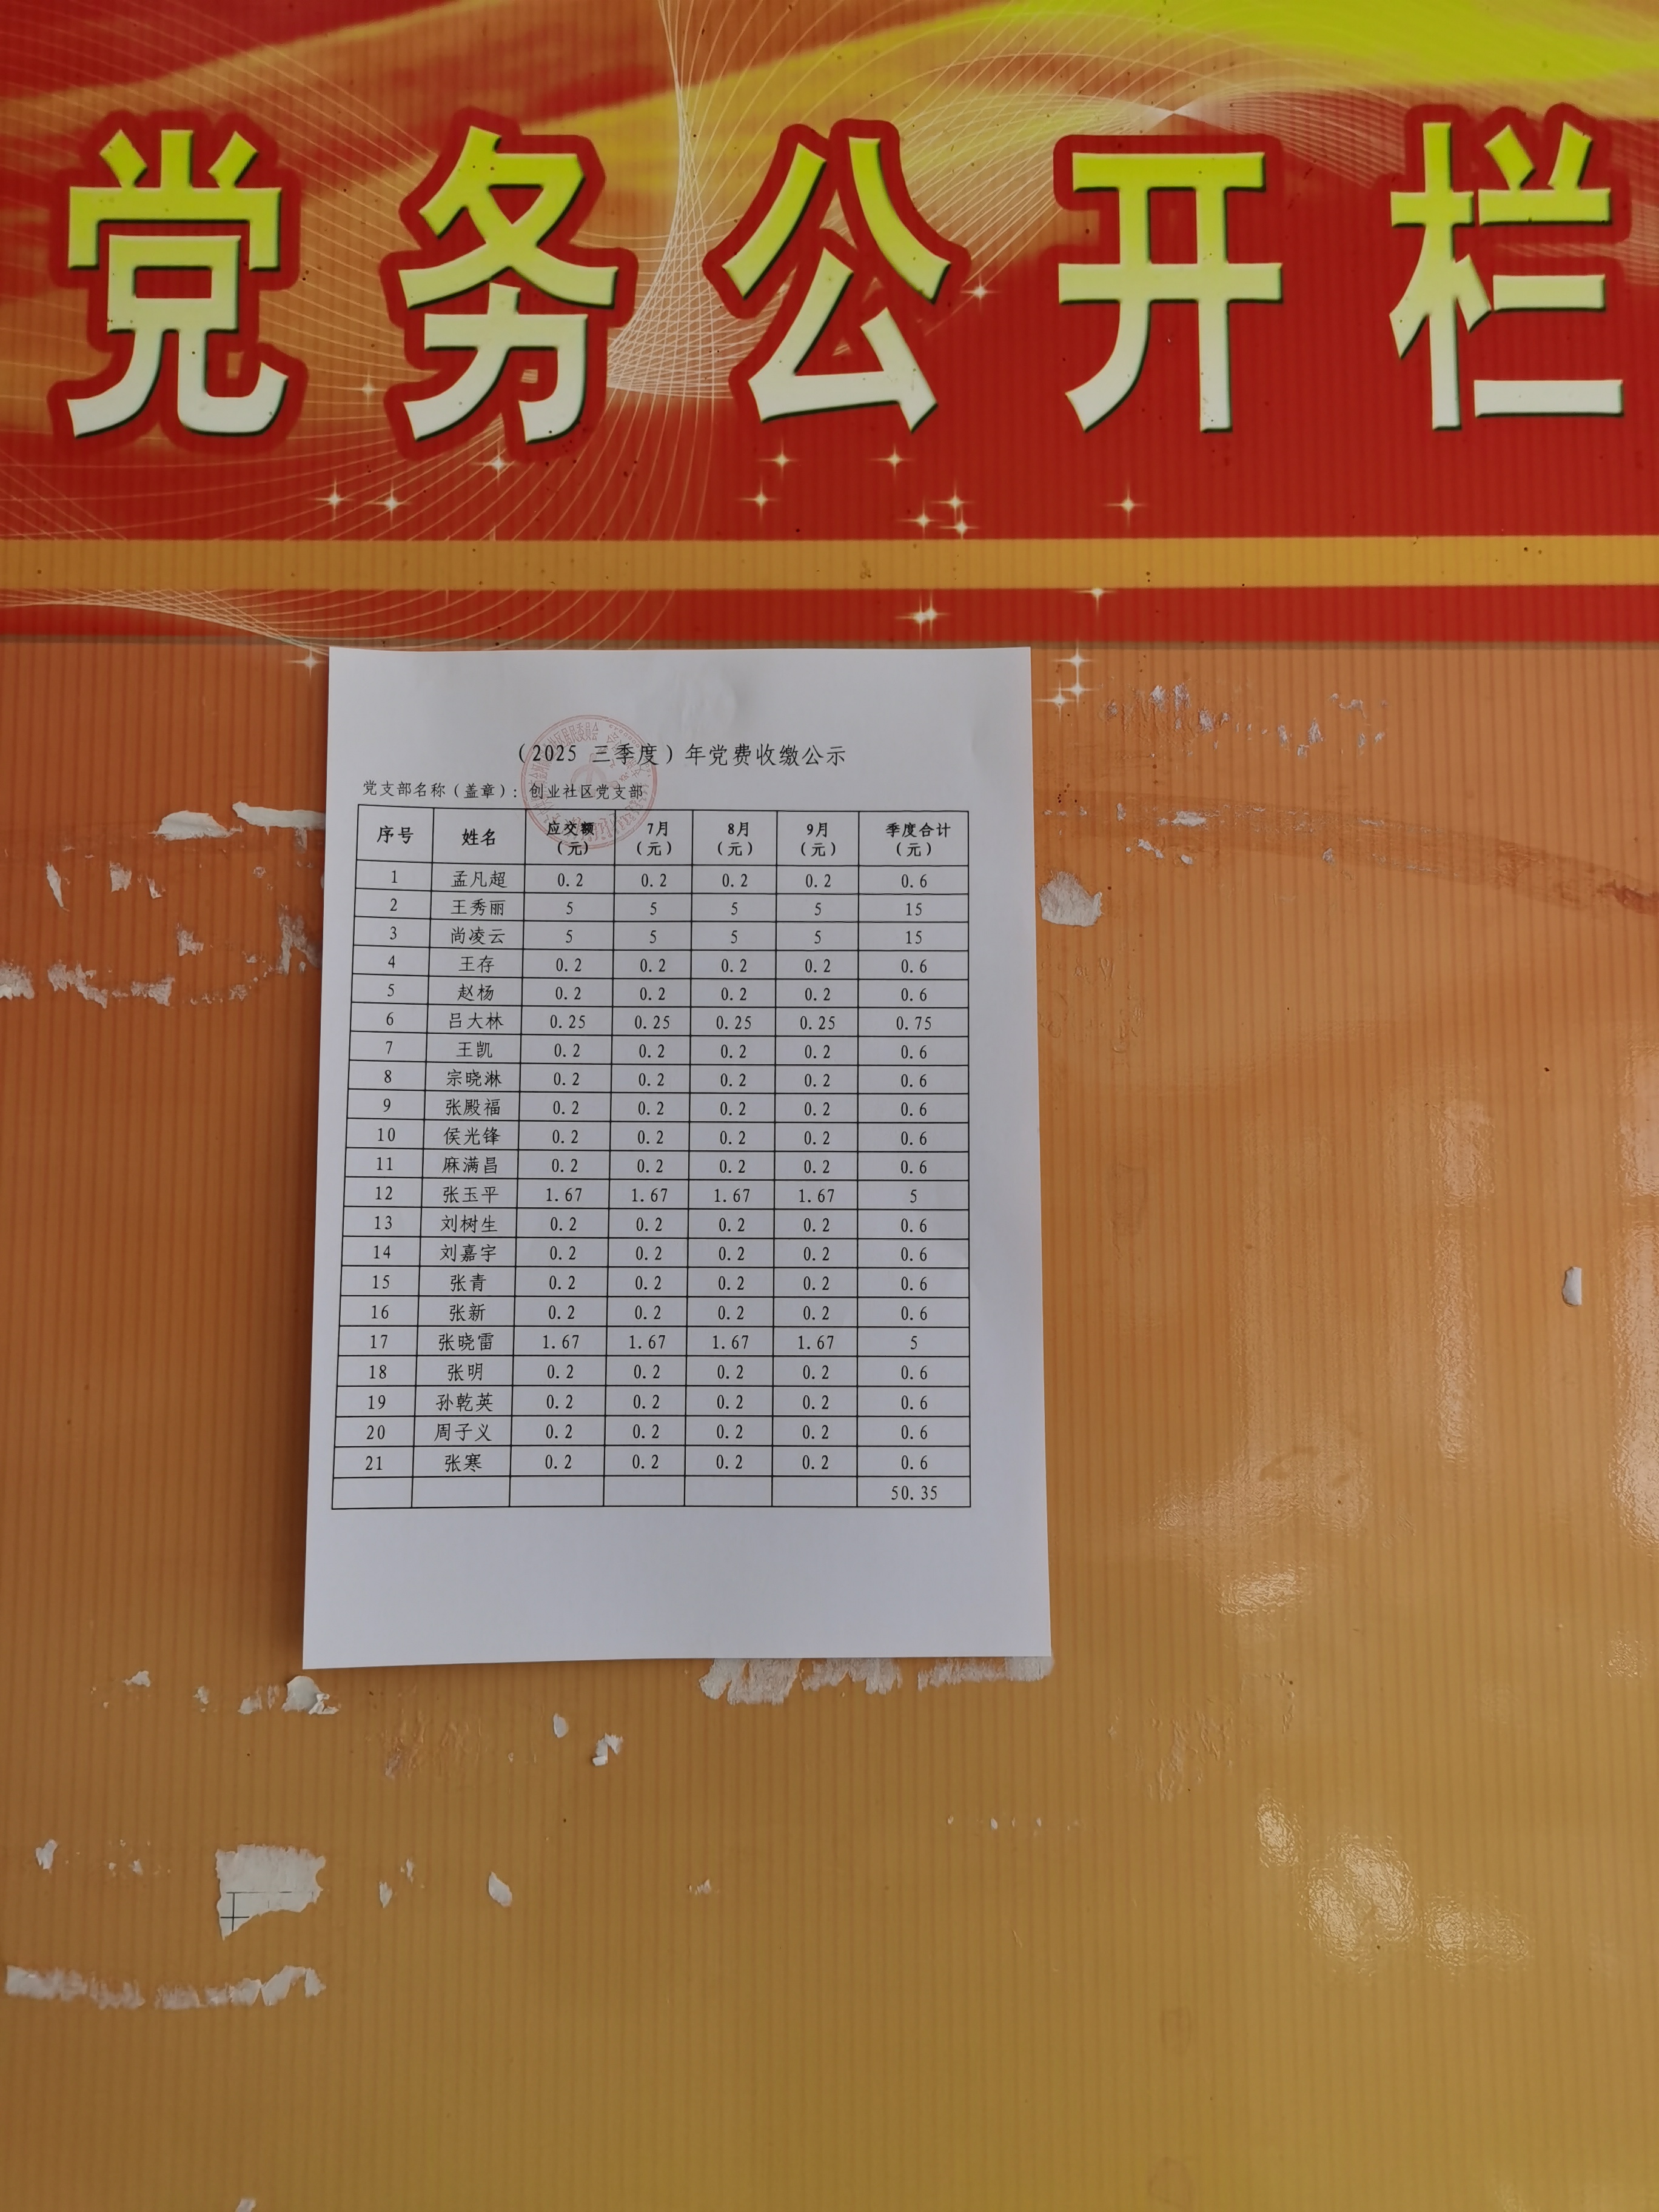 党务公开栏
（2025 三季度）年党费收缴公示
党支部名称（盖章）：创业社区党支部
序号 姓名 应交额（元） 7月（元） 8月（元） 9月（元） 季度合计（元）
1 孟凡超 0.2 0.2 0.2 0.2 0.6
2 王秀丽 5 5 5 5 15
3 尚凌云 5 5 5 5 15
4 王存 0.2 0.2 0.2 0.2 0.6
5 赵杨 0.2 0.2 0.2 0.2 0.6
6 吕大林 0.25 0.25 0.25 0.25 0.75
7 王凯 0.2 0.2 0.2 0.2 0.6
8 宗晓淋 0.2 0.2 0.2 0.2 0.6
9 张殿福 0.2 0.2 0.2 0.2 0.6
10 侯光锋 0.2 0.2 0.2 0.2 0.6
11 麻满昌 0.2 0.2 0.2 0.2 0.6
12 张玉平 1.67 1.67 1.67 1.67 5
13 刘树生 0.2 0.2 0.2 0.2 0.6
14 刘嘉宇 0.2 0.2 0.2 0.2 0.6
15 张青 0.2 0.2 0.2 0.2 0.6
16 张新 0.2 0.2 0.2 0.2 0.6
17 张晓雷 1.67 1.67 1.67 1.67 5
18 张明 0.2 0.2 0.2 0.2 0.6
19 孙乾英 0.2 0.2 0.2 0.2 0.6
20 周子义 0.2 0.2 0.2 0.2 0.6
21 张寒 0.2 0.2 0.2 0.2 0.6
50.35